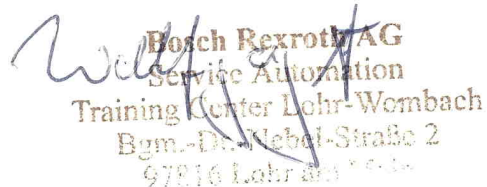 Bosch Rexroth AG
Service Automation
Training Center Lohr-Wombach
Bgm.-Dr.-Nebel-Straße 2
97816 Lohr am